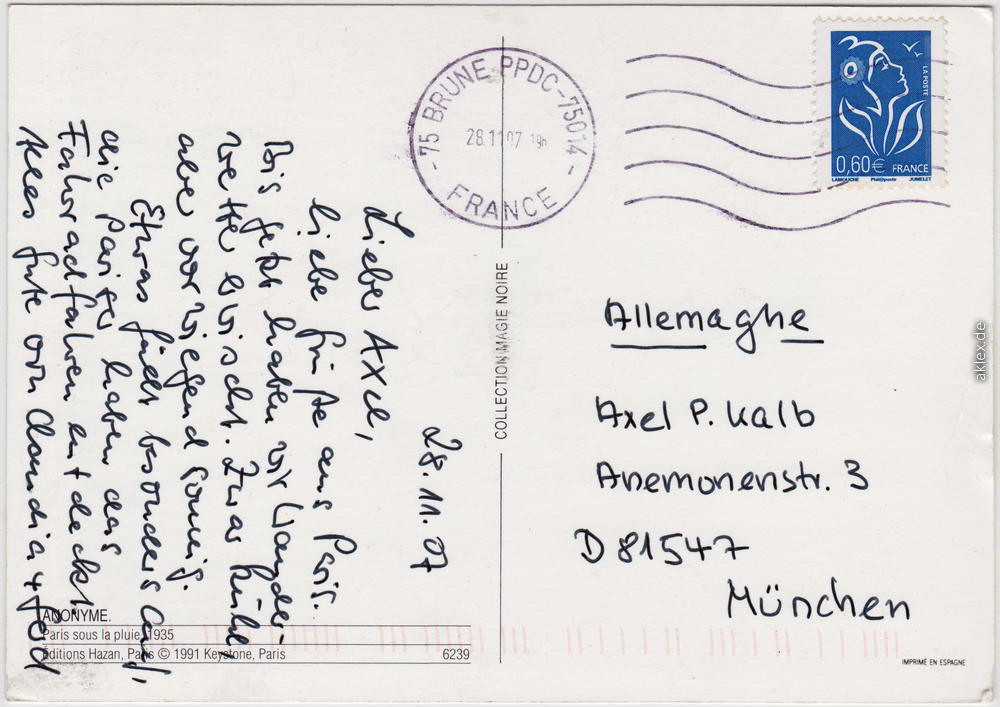 28.11.07
Lieber Axel,
liebe Grüße aus Paris.
Bis jetzt haben wir Wander-
wetter erwischt. Zwar kühl,
aber vorwiegend sonnig.
Etwas fällt besonders auf,
die Pariser haben das
Fahrradfahren entdeckt
Alles Gute von Claudia +
ANONYME.
Paris sous la pluie, 1935
Éditions Hazan, Paris © 1991 Keystone, Paris 6239
COLLECTION MAGIE NOIRE
75 BRUNE PPDC-75014
28.11 07 19h
FRANCE
LA POSTE
0,60€ FRANCE
LAMOUCHE Phil@poste JUMELET
Allemagne
Axel P. Kalb
Anemonenstr. 3
D 81547
München
IMPRIMÉ EN ESPAGNE
aklex.de